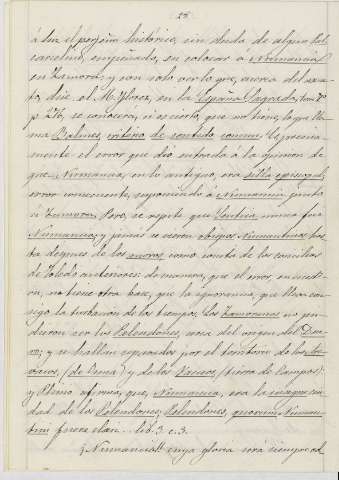 25
á luz el perjuro histórico, sin duda de algun fal
sario, empeñado, en colocar á Numancia
en Zamora; y con solo ver lo que, acerca del
to, dice el M. Florez, en la España Sagrada, tom 7º
p 276, se conocerá, si es cierto, que no tiene, lo que lla
ma Balmes, criterio de sentido comun. Es precisa
mente el error que dió entrada á la opinion de
que, Numancia, en lo antiguo, era silla episcopal;
error consecuente, suponiendo á Numancia junto
á Zamora. Pero, se repite que Sentica nunca fué
Numancia, y jamás se vieron obispos Numantinos has
ta despues de los moros como consta de los concilios
de Toledo anteriores: de manera, que el error en cuestion
no tiene otra base, que la ignorancia, que lleva con
sigo la turbacion de los tiempos. Los Zamoranos no pu
dieron ser los Pelendones, cerca del origen del Due
ro; y se hallan separados por el territorio de los Are
vacos, (de Osma) y de los Vaceos, (tierra de Campos)
y Plinio afirma, que, Numancia, era la
dad de los Pelendones; Pelendones, quorum Numan
tini fuere clari... lib. 3. c. 3.
¡Numancia!! cuya gloria será siempre